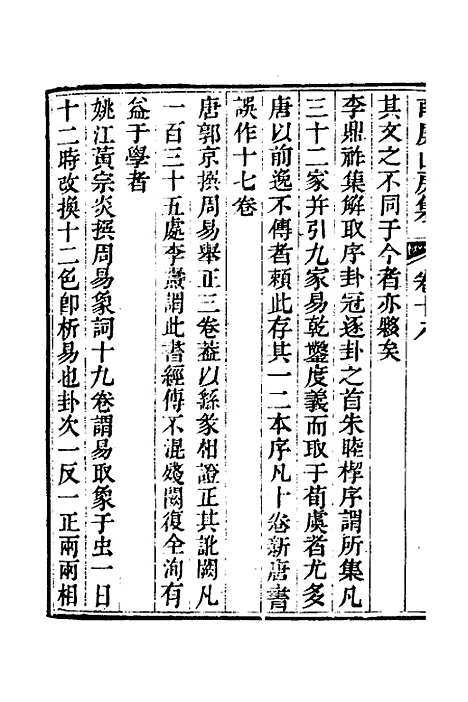 其文之不同于今者亦夥矣
李鼎祚集解取序卦冠逐卦之首朱睦㮮序謂所集凡
三十二家并引九家易乾鑿度義而取于荀虞者尤多
唐以前逸不傳者賴此存其一二本序凡十卷新唐書
誤作十七卷
唐郭京撰周易舉正三卷葢以繇彖相證正其訛闕凡
一百三十五處李燾謂此書經傳不混殘闕復全洵有
益于學者
姚江黃宗炎撰周易象詞十九卷謂易取象于虫一日
十二時改換十二色卽析易也卦次一反一正兩兩相